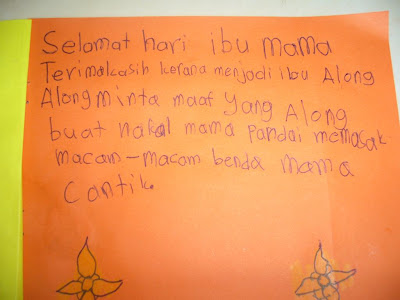 Selamat hari ibu mama
Terimakasih kerana menjadi ibu Along
Along minta maaf yang Along
buat nakal mama pandai memasak
macam-macam benda mama
cantik.